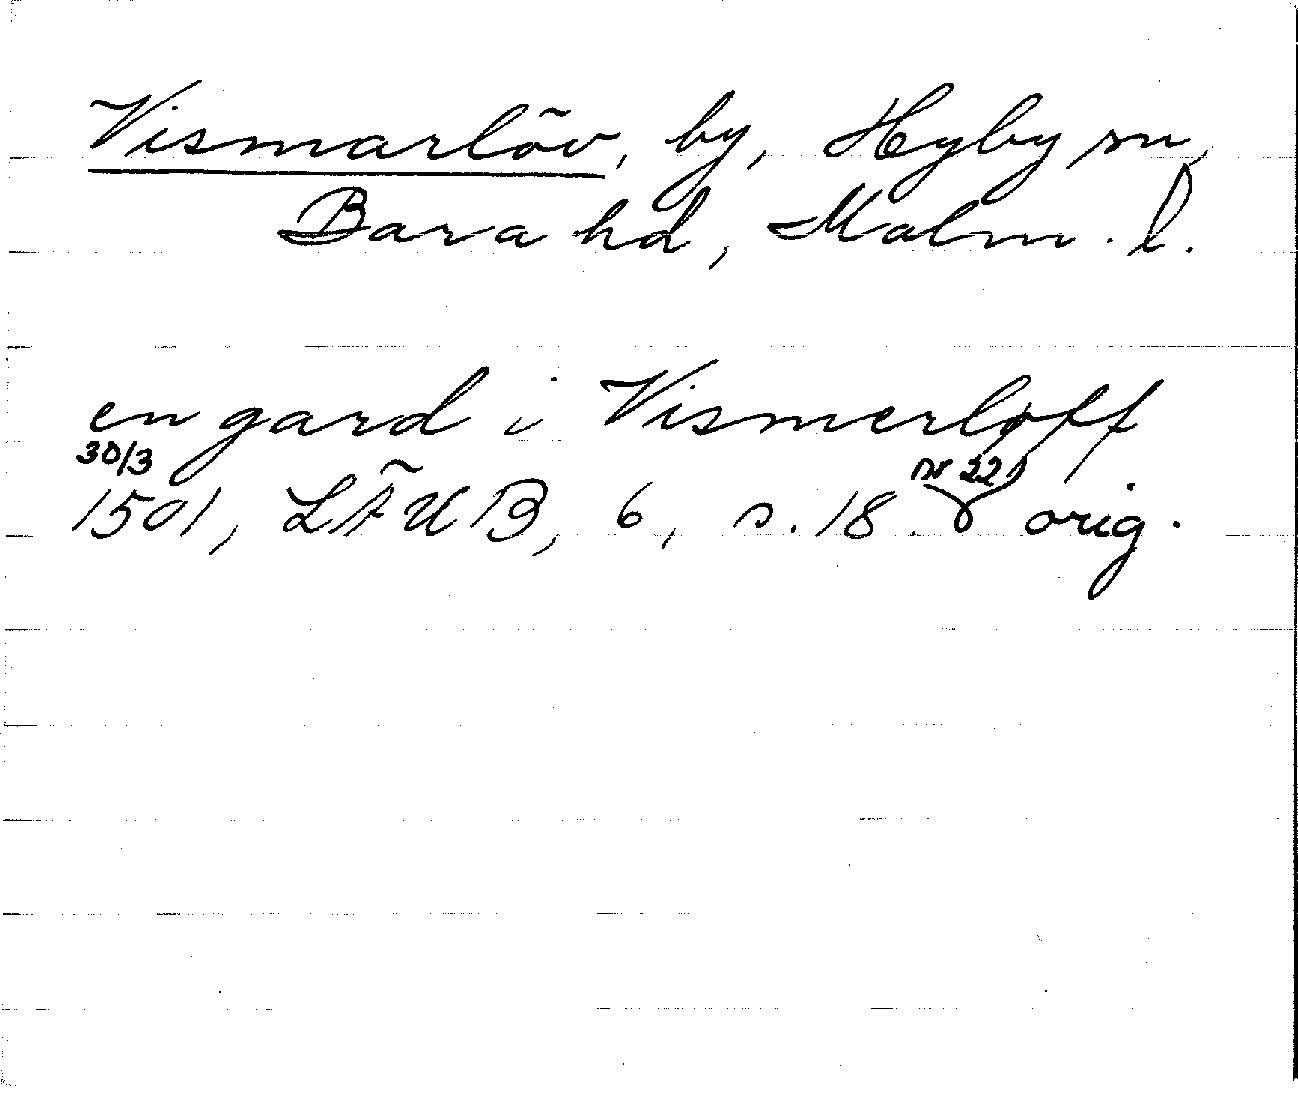 Vismarlöv, by, Hyby sn,
Bara hd, Malm. l.
en gard i Vismerløff
30/3 nr 221
1501, LÄUB, 6, s. 18 orig.